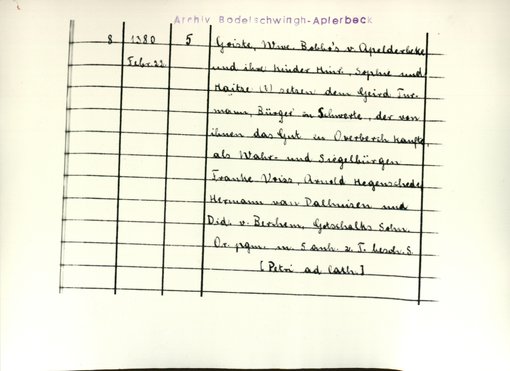 Archiv Bodelschwingh-Aplerbeck
8 1380 5 Goiste, Wwe. Bobbo's v. Apelderbeke
Febr. 22 und ihre Kinder Hinr., Sophie und
(1) setzen dem Gerd
mann, Bürger in Schwerte, der von
ihnen das Gut in Overberch kaufte,
als Wahr- und Siegelbürgen
Franke Voiss, Arnold Hegenschede,
Hermann van Dalhusen und
Did. v. Berchem, Gotschalks Sohn.
Or. pgm. m. 5 anh. z. T. besch. S.
[Petri ad cath.]